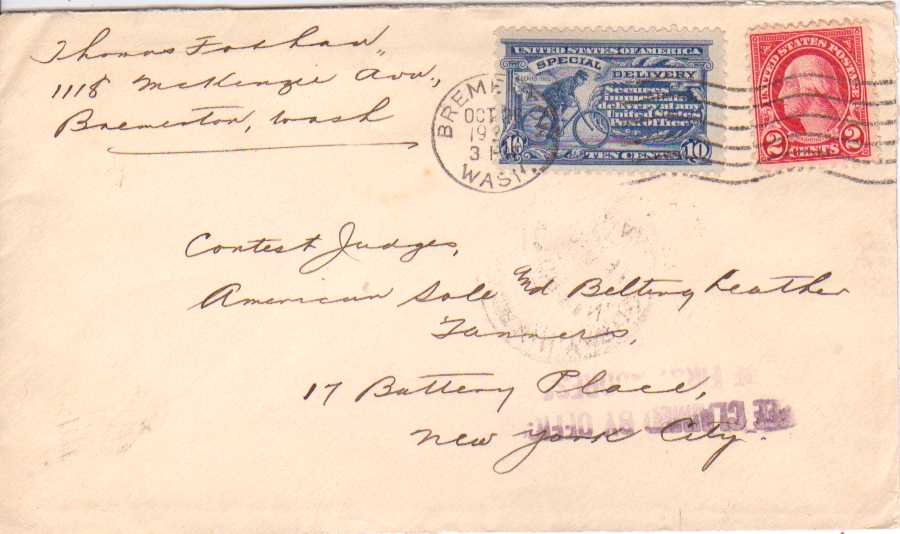 Thomas
1118 McKenzie Ave.,
Bremerton, Wash
UNITED STATES OF AMERICA
SPECIAL DELIVERY
Secures
immediate
delivery at any
United States
Post office
10 TEN CENTS 10
UNITED STATES POSTAGE
2 CENTS 2
BREMERTON
OCT
19
3 P
WASH.
Contest Judges,
American Sole and Belting Leather
Tanners,
17 Battery Place,
New York City.
FEE CLAIMED BY OFFICE
OF FIRST ADDRESS